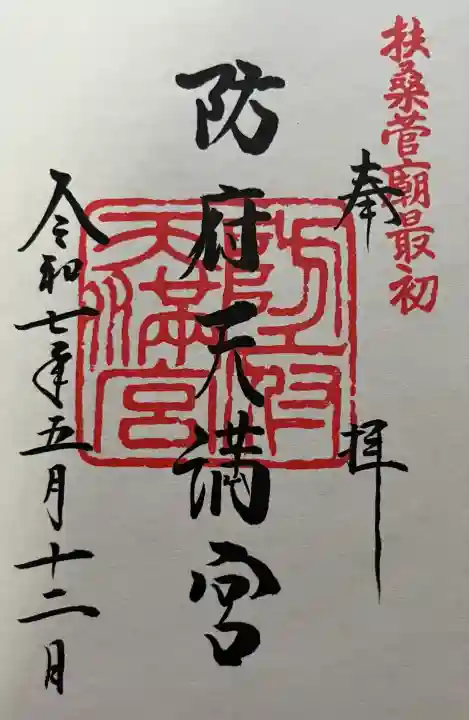 扶桑菅廟最初
奉拝
防府天満宮
防府
天満宮
令和七年五月十二日